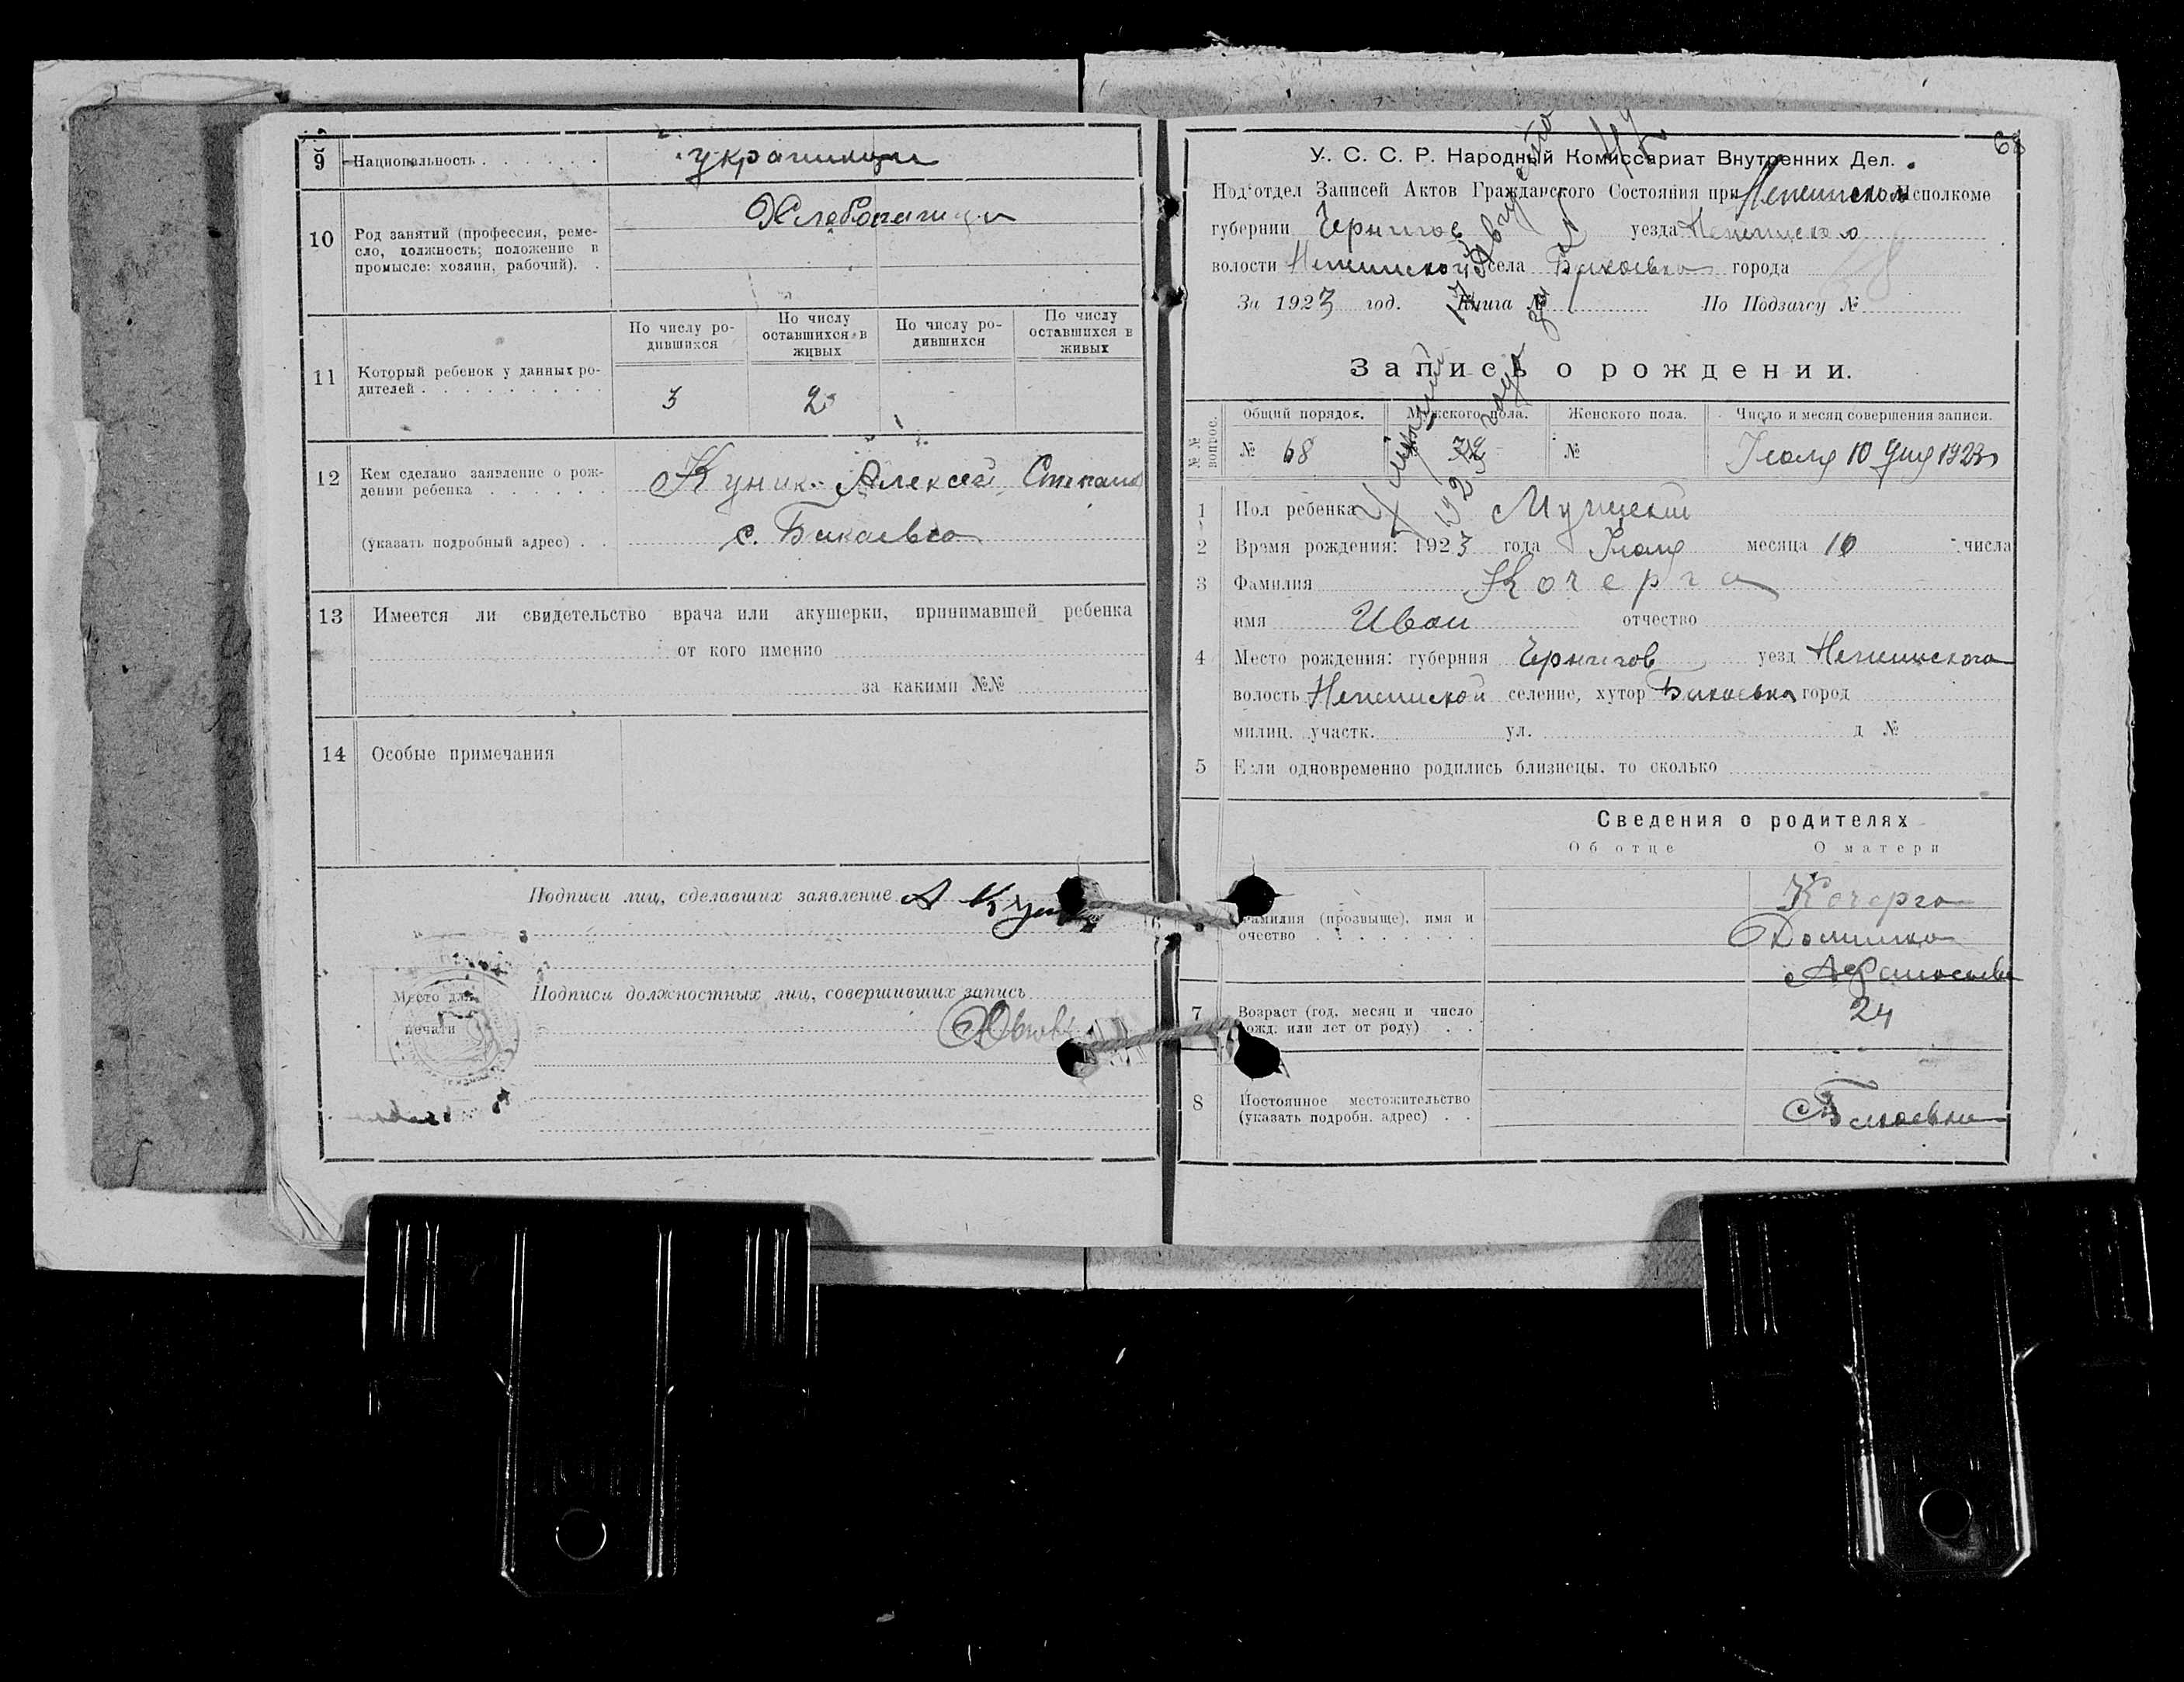 9 Национальность украинцы
10 Род занятий (профессия, реме-
сло, должность; положение в
промысле: хозяин, рабочий).
Хлебопашцы
11 Который ребенок у данных ро-
дителей
По числу ро-
дившихся
По числу
оставшихся в
живых
По числу ро-
дившихся
По числу
оставшихся в
живых
3 2
12 Кем сделано заявление о рож-
дении ребенка Куник Алексей Степан
(указать подробный адрес) с. Бакаевка
13 Имеется ли свидетельство врача или акушерки, принимавшей ребенка
от кого именно
за какими №№
14 Особые примечания
Подписи лиц, сделавших заявление А Кун
Место для
печати
Подписи должностных лиц, совершивших запись
68
У. С. С. Р. Народный Комиссариат Внутренних Дел.
Под'отдел Записей Актов Гражданского Состояния при Нежинском Исполкоме
губернии Чернигов уезда Нежинского
волости Нежинской села Бакаевка города
За 1923 год. Книга № По Подзагсу №
Запись о рождении.
№№ вопрос.
Общий порядок. Мужского пола. Женского пола. Число и месяц совершения записи.
№ 68 № Июля 10 дня 1923
1 Пол ребенка Мужеский
2 Время рождения: 1923 года Июля месяца 10 числа
3 Фамилия Кочерга
имя Иван отчество
4 Место рождения: губерния Чернигов уезд Нежинского
волость Нежинской селение, хутор Бакаевка город
милиц. участк. ул. д №
5 Если одновременно родились близнецы, то сколько
Сведения о родителях
Об отце О матери
Фамилия (прозвище), имя и
очество
Кочерга
Домника
7 Возраст (год, месяц и число
рожд. или лет от роду) 24
8 Постоянное местожительство
(указать подробн. адрес) с Бакаевка